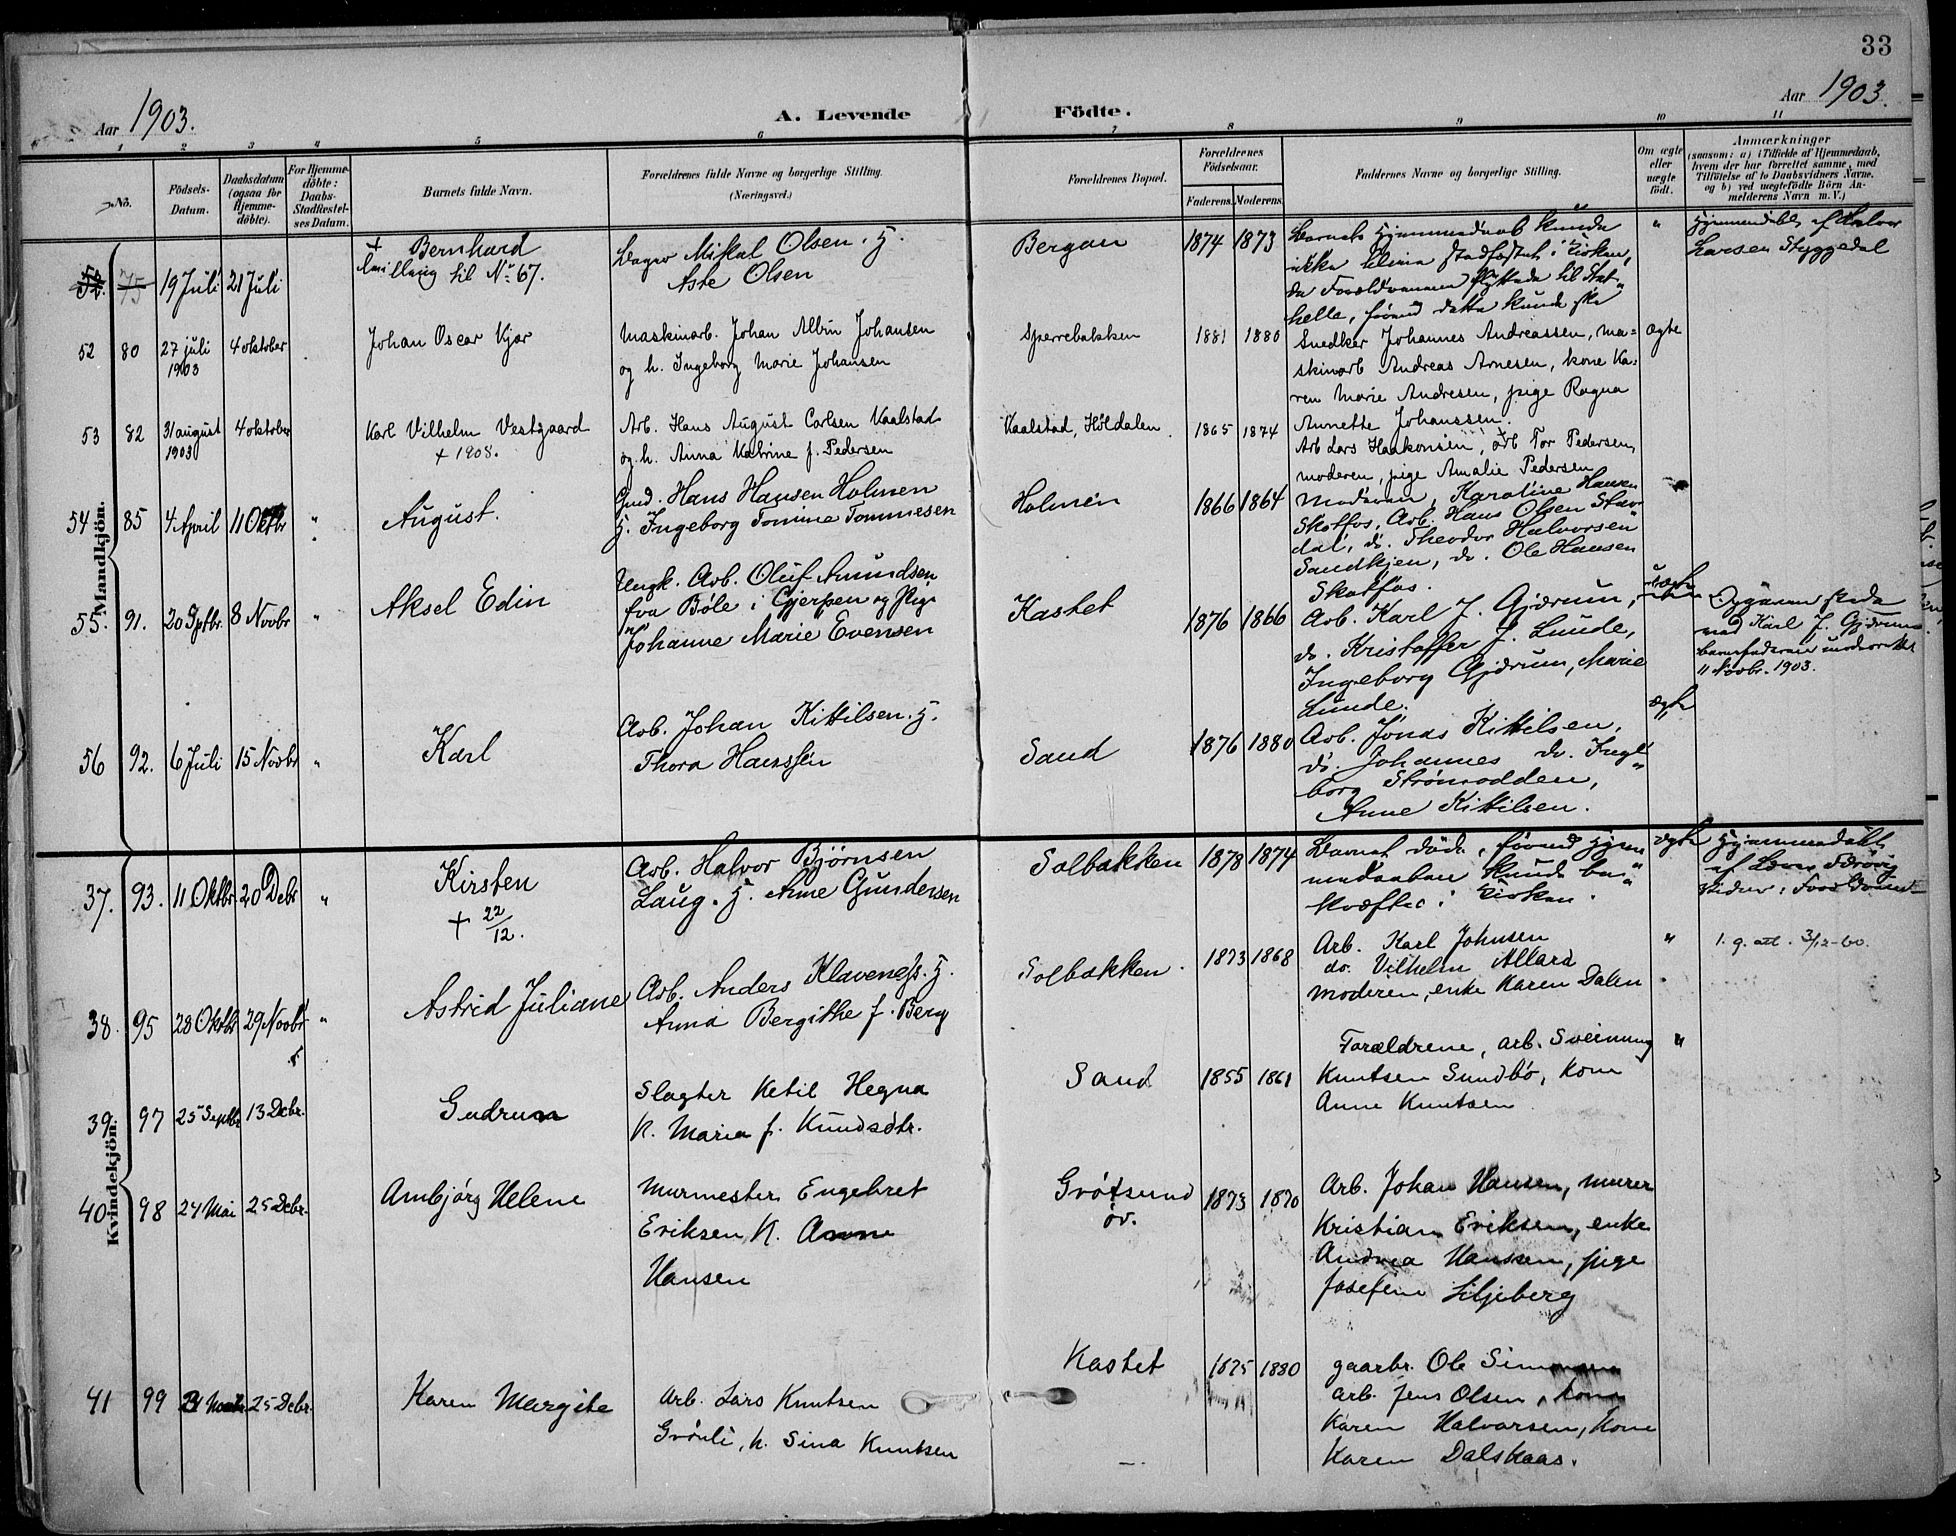 33
Aar 1903.
A. Levende Födte.
Aar 1903.
1 2 3 4 5 6 7 8 9 10 11
No.
Födsels-Datum.
Daabsdatum (ogsaa for Hjemmedöbte).
For Hjemmedöbte: Daabs-Stadfæstelses Datum.
Barnets fulde Navn.
Forældrenes fulde Navne og borgerlige Stilling.
(Næringsvei.)
Forældrenes Bopæl.
Forældrenes Födselsaar.
Faderens. Moderens.
Faddernes Navne og borgerlige Stilling.
Om ægte eller uægte födt.
Anmærkninger
(saasom: a) i Tilfælde af Hjemmedaab, hvem der har forrettet samme, med Tilföielse af to Daabsvidners Navne, og b) ved uægtefödte Börn Anmelderens Navn m. V.)
Mandkjön.
75 19 Juli 21 Juli
+ Bernhard
tvilling til No 67.
Mikal Olsen. H.
Aste Olsen
Bergan
1874 1873
Barnets Hjemmedaab kunde
ikke blive stadfæstet i Kirken,
da Forældrene flyttede til Stat-
helle, førend dette kunde ske
"
Hjemmedøbt af Halvor
Larsen Styggedal
52 80 27 juli 1903 4 oktober
Johan Oscar Kjær
Maskinarb. Johan Albin Johansen
og h. Ingeborg Marie Johansen
Sperrebakken
1881 1880
Snedker Johannes Andreassen, ma-
skinarb Andreas Arnesen, kone Ka-
ren Marie Andresen, pige Ragna
Annette Johanssen.
ægte
53 82 31 august 1903 4 oktober
Karl Vilhelm Vestgaard
+ 1908.
Arb. Hans August Carlsen Kaalstad
og h. Anna Katrine f. Pedersen
Kaalstad, Høldalen.
1865 1874
Arb Lars Haakonsen, arb Tor Pedersen,
moderen, pige Amalie Pedersen
54 85 4 April 11 Oktbr "
August.
Gmd. Hans Hansen Holmen
H. Ingeborg Tomine Tommesen
Holmen
1866 1864
Moderen, Karoline Hansen
Skotfos, Arb. Hans Olsen Stav-
dal, do. Theodor Halvorsen
Sandkjen, do. Ole Hansen
Skotfos.
55. 91. 20 Sptbr. 8 Novbr "
Aksel Edin
Ungk. Arb. Oluf Amundsen
fra Bøle i Gjerpen og Pige
Johanne Marie Evensen
Kastet
1876 1866
Arb. Karl J. Gjærum,
do. Kristoffer J. Lunde,
Ingeborg Gjærum, Marie
Lunde.
uægte
Opgaven skede
ved Karl J. Gjærum
barnefaderen underrettet
11 Novbr. 1903.
56 92. 6 Juli 15 Novbr "
Karl
Arb. Johan Kittilsen. H.
Thora Hanssen
Sand
1876 1880
Arb. Jonas Kittilsen,
do. Johannes do. Inge-
borg Strømodden,
Anne Kittilsen.
ægte
Kvindekjön.
37. 93. 11 Oktbr. 20 Debr "
Kirsten
+ 22/12.
Arb. Halvor Bjørnsen
Laug. H. Anne Gundersen
Solbakken
1878 1874
Barnet døde, førend Hjem-
medaaben kunde be-
kræftes i Kirken.
ægte
Hjemmedøbt
38. 95 28 Oktbr 29 Novbr "
Astrid Juliane
Arb. Anders Klavenæs. H.
Anna Bergithe f. Berg
Solbakken.
1873 1868
Arb. Karl Johnsen
do. Vilhelm Allard
Moderen, enke Karen Dalen
"
1. g. att. 3/12-60.
39. 97 25 Septbr 13 Debr.
Gudrun
Slagter Ketil Hegna
K. Maria f. Knudsdtr.
Sand
1855 1861
Forældrene, arb. Sveinung
Knutsen Sundbö, Kone
Anne Knutsen
"
40. 98 24 Mai 25 Debr.
Arnbjørg Helene
Murmester Engebret
Eriksen K. Anne
Hansen
Grøtsund
øv.
1873 1870
Arb. Johan Hansen, murer
Kristian Eriksen, enke
Andrea Hanssen, pige
Josefine Liljeberg
41 99 25 Debr.
Karen Margite
Arb. Lars Knutsen
Grönli, K. Sina Knutsen
Kastet
1875 1880
gaarbr. Ole
arb. Jens Olsen, kone
Karen Halvorsen, Kone
Karen Dalskaas.